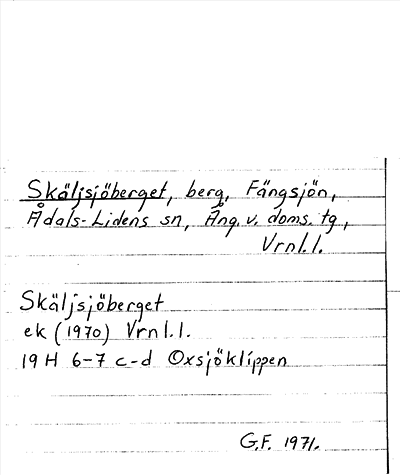 Skäljsjöberget, berg, Fängsjön,
Ådals-Lidens sn, Ång. v. doms. tg,
Vrnl.l.
Skäljsjöberget
ek (1970) Vrnl.l.
19 H 6-7 c-d Oxsjöklippen
G.F. 1971.